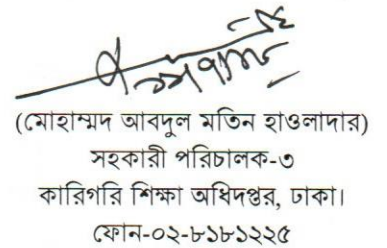 (মোহাম্মদ আবদুল মতিন হাওলাদার)
সহকারী পরিচালক-৩
কারিগরি শিক্ষা অধিদপ্তর, ঢাকা।
ফোন-০২-৮১৮১২২৫